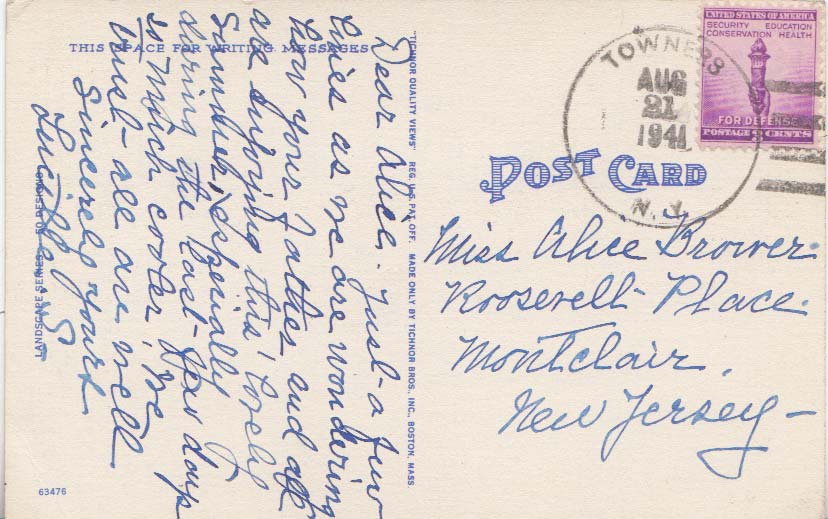 THIS SPACE FOR WRITING MESSAGES
Dear Alice. Just a few
lines as we are wondering
how your Father and all
are enjoying this lovely
Summer, especially
during the last few days
so much cooler, we
trust all are well
Sincerely yours
Lucille
LANDSCAPE SERIES—50 DESIGNS
63476
"TICHNOR QUALITY VIEWS" REG. U. S. PAT. OFF. MADE ONLY BY TICHNOR BROS., INC., BOSTON, MASS.
TOWNERS
AUG
21
1941
N. Y.
UNITED STATES OF AMERICA
SECURITY EDUCATION
CONSERVATION HEALTH
FOR DEFENSE
POSTAGE 3 CENTS
POST CARD
Miss Alice Brower.
Roosevelt Place.
Montclair.
New Jersey—